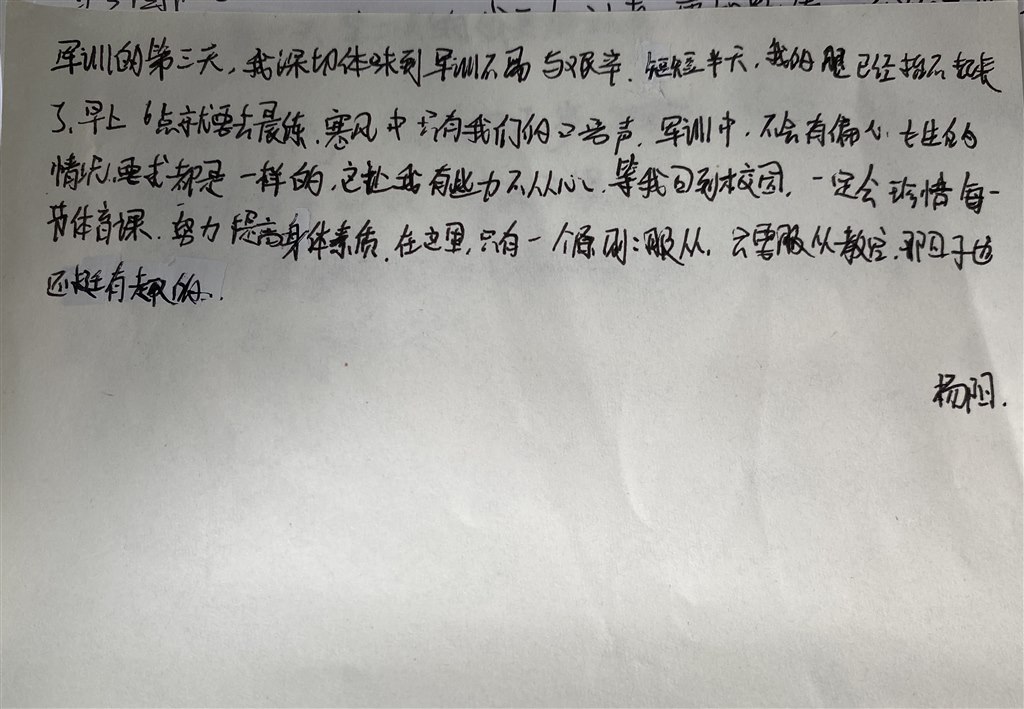 军训的第三天，我深切体味到军训不易与艰辛．短短半天，我的腿已经抬不起来
了．早上6点就要去晨练．寒风中只有我们的口号声．军训中，不会有偏心．女生的
情况，要求都是一样的，这让我有些力不从心．等我回到校园，一定会珍惜每一
节体育课．努力提高身体素质．在这里，只有一个原则：服从．只需服从教官．那日子也
还挺有趣的．
杨阳．